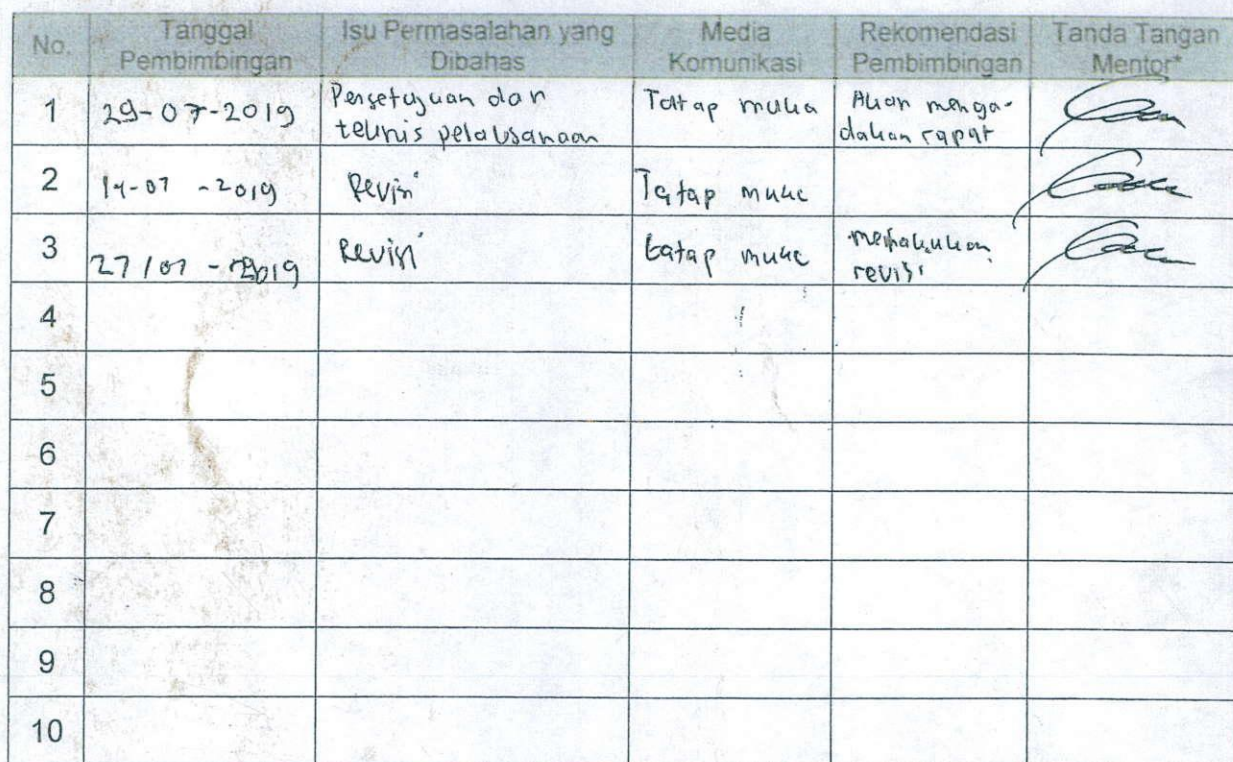 No. Tanggal Pembimbingan Isu Permasalahan yang Dibahas Media Komunikasi Rekomendasi Pembimbingan Tanda Tangan Mentor*
1 29-07-2019 Persetujuan dan teknis pelaksanaan Tatap muka Akan menga-dakan rapat
2 -2019 Revisi Tatap muka
3 -2019 Revisi tatap muka melakukan revisi
4
5
6
7
8
9
10